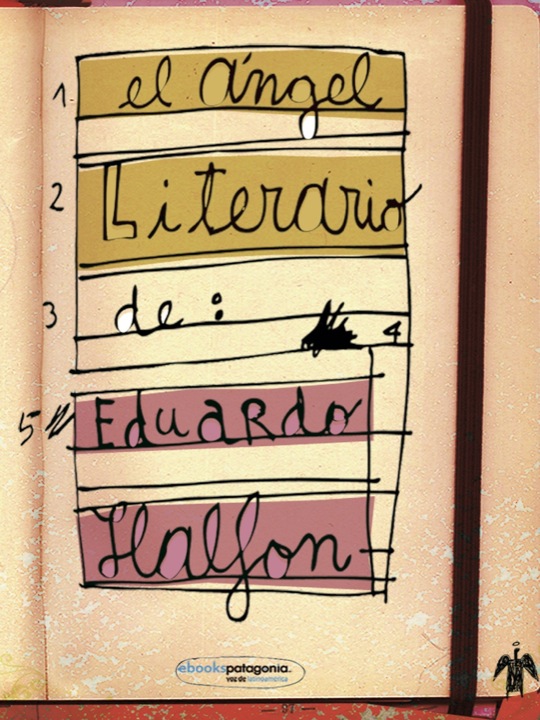 1. el ángel
2 Literario
3 de :
4
5 Eduardo
Halfon
ebookspatagonia.
voz de latinoamérica
— 97 —